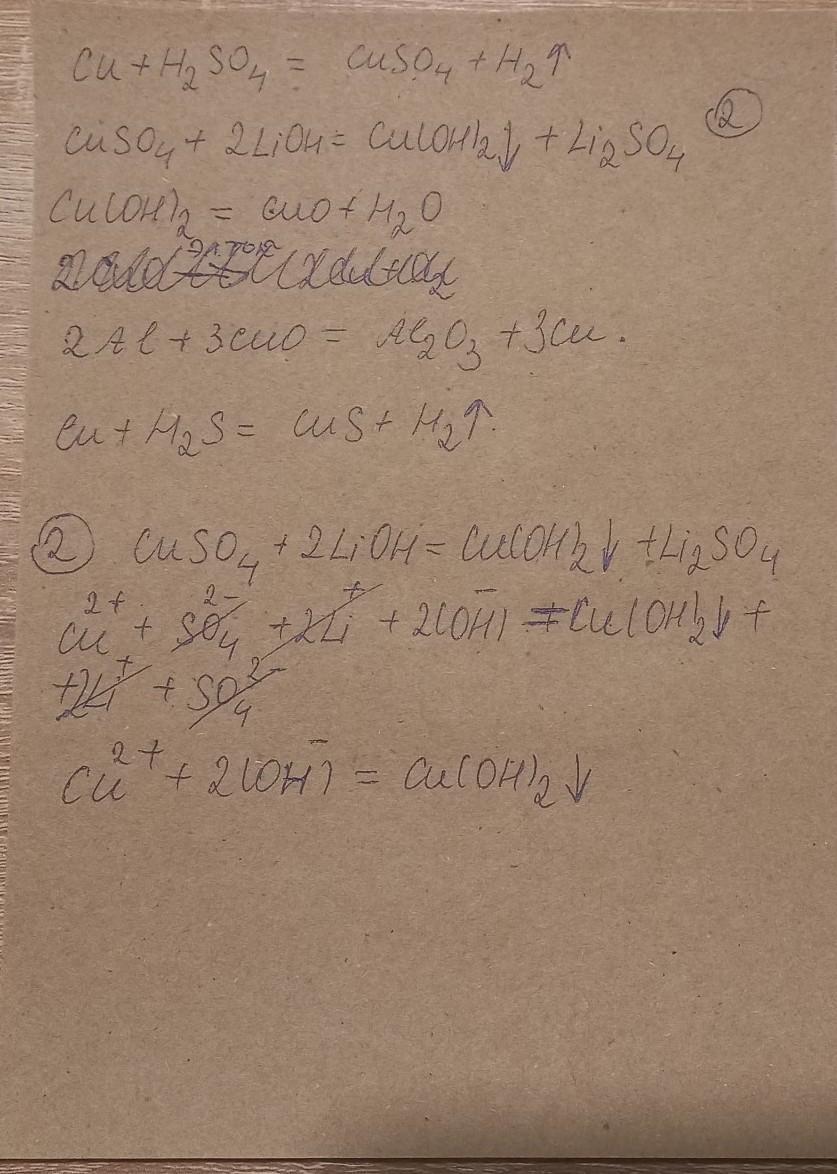 Cu + H₂SO₄ = CuSO₄ + H₂↑
CuSO₄ + 2LiOH = Cu(OH)₂↓ + Li₂SO₄ (2)
Cu(OH)₂ = CuO + H₂O
2Al + 3CuO = Al₂O₃ + 3Cu.
Cu + H₂S = CuS + H₂↑.
(2) CuSO₄ + 2LiOH = Cu(OH)₂↓ + Li₂SO₄
Cu²⁺ + SO₄²⁻ + 2Li⁺ + 2(OH⁻) = Cu(OH)₂↓ +
+2Li⁺ + SO₄²⁻
Cu²⁺ + 2(OH⁻) = Cu(OH)₂↓